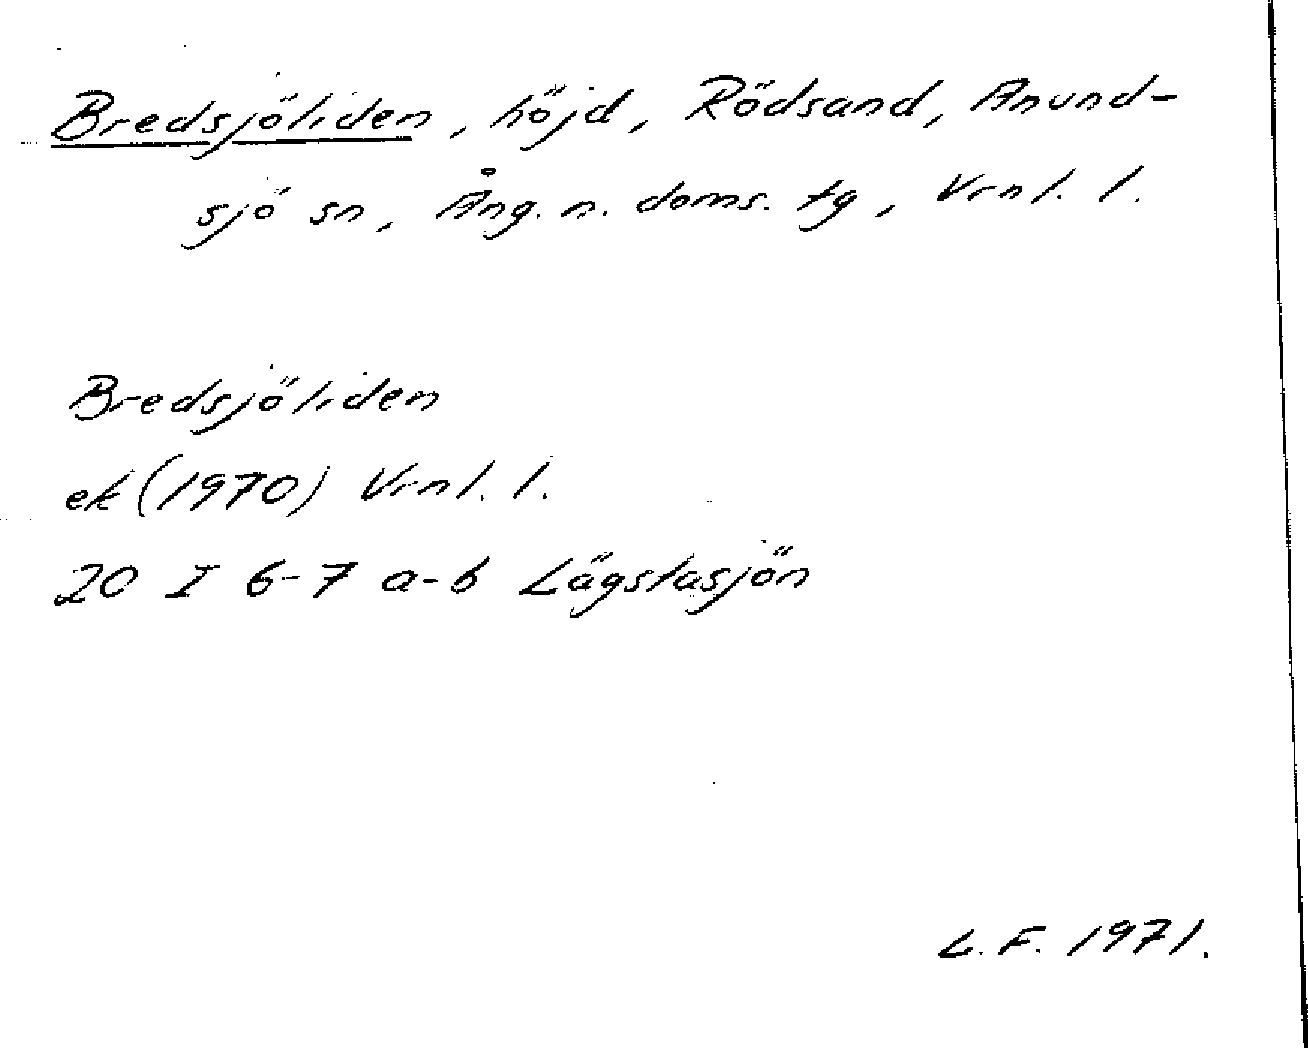 Bredsjöliden, höjd, Rödsand, Anund-
sjö sn, Ång. n. doms. tg, Vrnl. l.
Bredsjöliden
ek (1970) Vrnl. l.
20 I 6-7 a-b Lägstasjön
L. F. 1971.